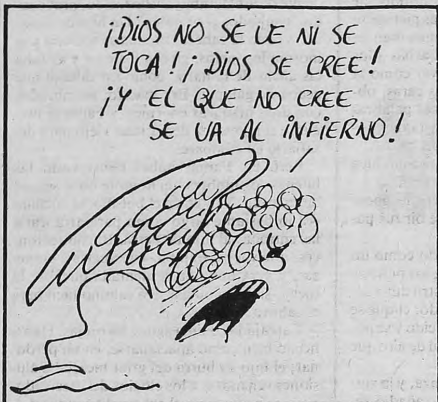 ¡DIOS NO SE VE NI SE
TOCA! ¡DIOS SE CREE!
¡Y EL QUE NO CREE
SE VA AL INFIERNO!